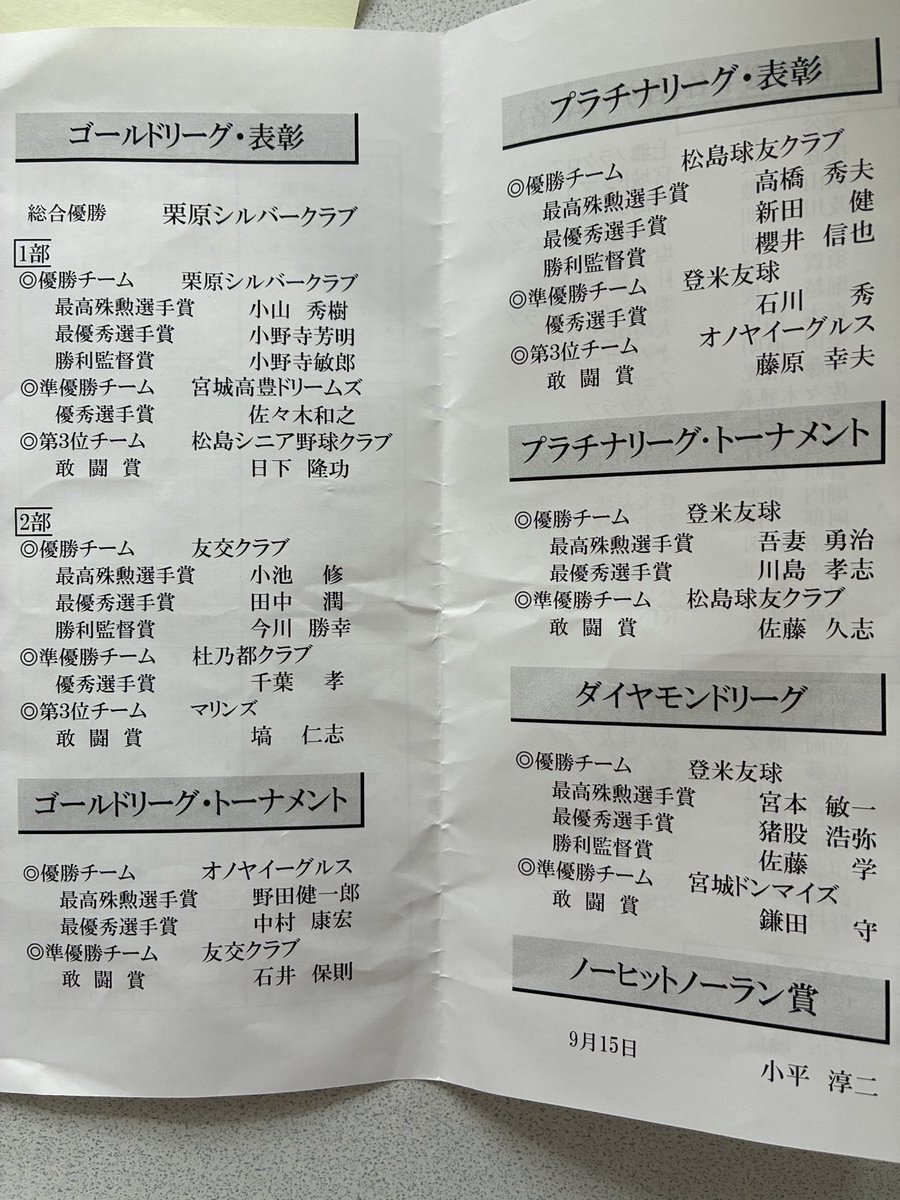 ゴールドリーグ・表彰
総合優勝 栗原シルバークラブ
1部
◎優勝チーム 栗原シルバークラブ
最高殊勲選手賞 小山 秀樹
最優秀選手賞 小野寺芳明
勝利監督賞 小野寺敏郎
◎準優勝チーム 宮城高豊ドリームズ
優秀選手賞 佐々木和之
◎第3位チーム 松島シニア野球クラブ
敢闘賞 日下 隆功
2部
◎優勝チーム 友交クラブ
最高殊勲選手賞 小池 修
最優秀選手賞 田中 潤
勝利監督賞 今川 勝幸
◎準優勝チーム 杜乃都クラブ
優秀選手賞 千葉 孝
◎第3位チーム マリンズ
敢闘賞 塙 仁志
ゴールドリーグ・トーナメント
◎優勝チーム オノヤイーグルス
最高殊勲選手賞 野田健一郎
最優秀選手賞 中村 康宏
◎準優勝チーム 友交クラブ
敢闘賞 石井 保則
プラチナリーグ・表彰
◎優勝チーム 松島球友クラブ
最高殊勲選手賞 高橋 秀夫
最優秀選手賞 新田 健
勝利監督賞 櫻井 信也
◎準優勝チーム 登米友球
優秀選手賞 石川 秀
◎第3位チーム オノヤイーグルス
敢闘賞 藤原 幸夫
プラチナリーグ・トーナメント
◎優勝チーム 登米友球
最高殊勲選手賞 吾妻 勇治
最優秀選手賞 川島 孝志
◎準優勝チーム 松島球友クラブ
敢闘賞 佐藤 久志
ダイヤモンドリーグ
◎優勝チーム 登米友球
最高殊勲選手賞 宮本 敏一
最優秀選手賞 猪股 浩弥
勝利監督賞 佐藤 学
◎準優勝チーム 宮城ドンマイズ
敢闘賞 鎌田 守
ノーヒットノーラン賞
9月15日
小平 淳二